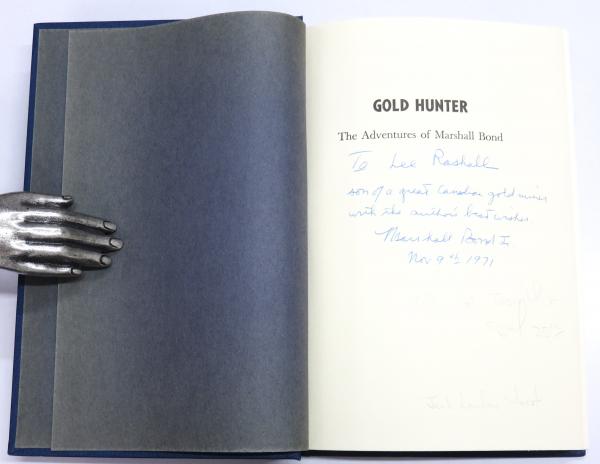 GOLD HUNTER
The Adventures of Marshall Bond
To Lee Rashall
son of a great Canadian gold miner
with the author's best wishes
Marshall Bond Jr
Nov 9th 1971
Jack London